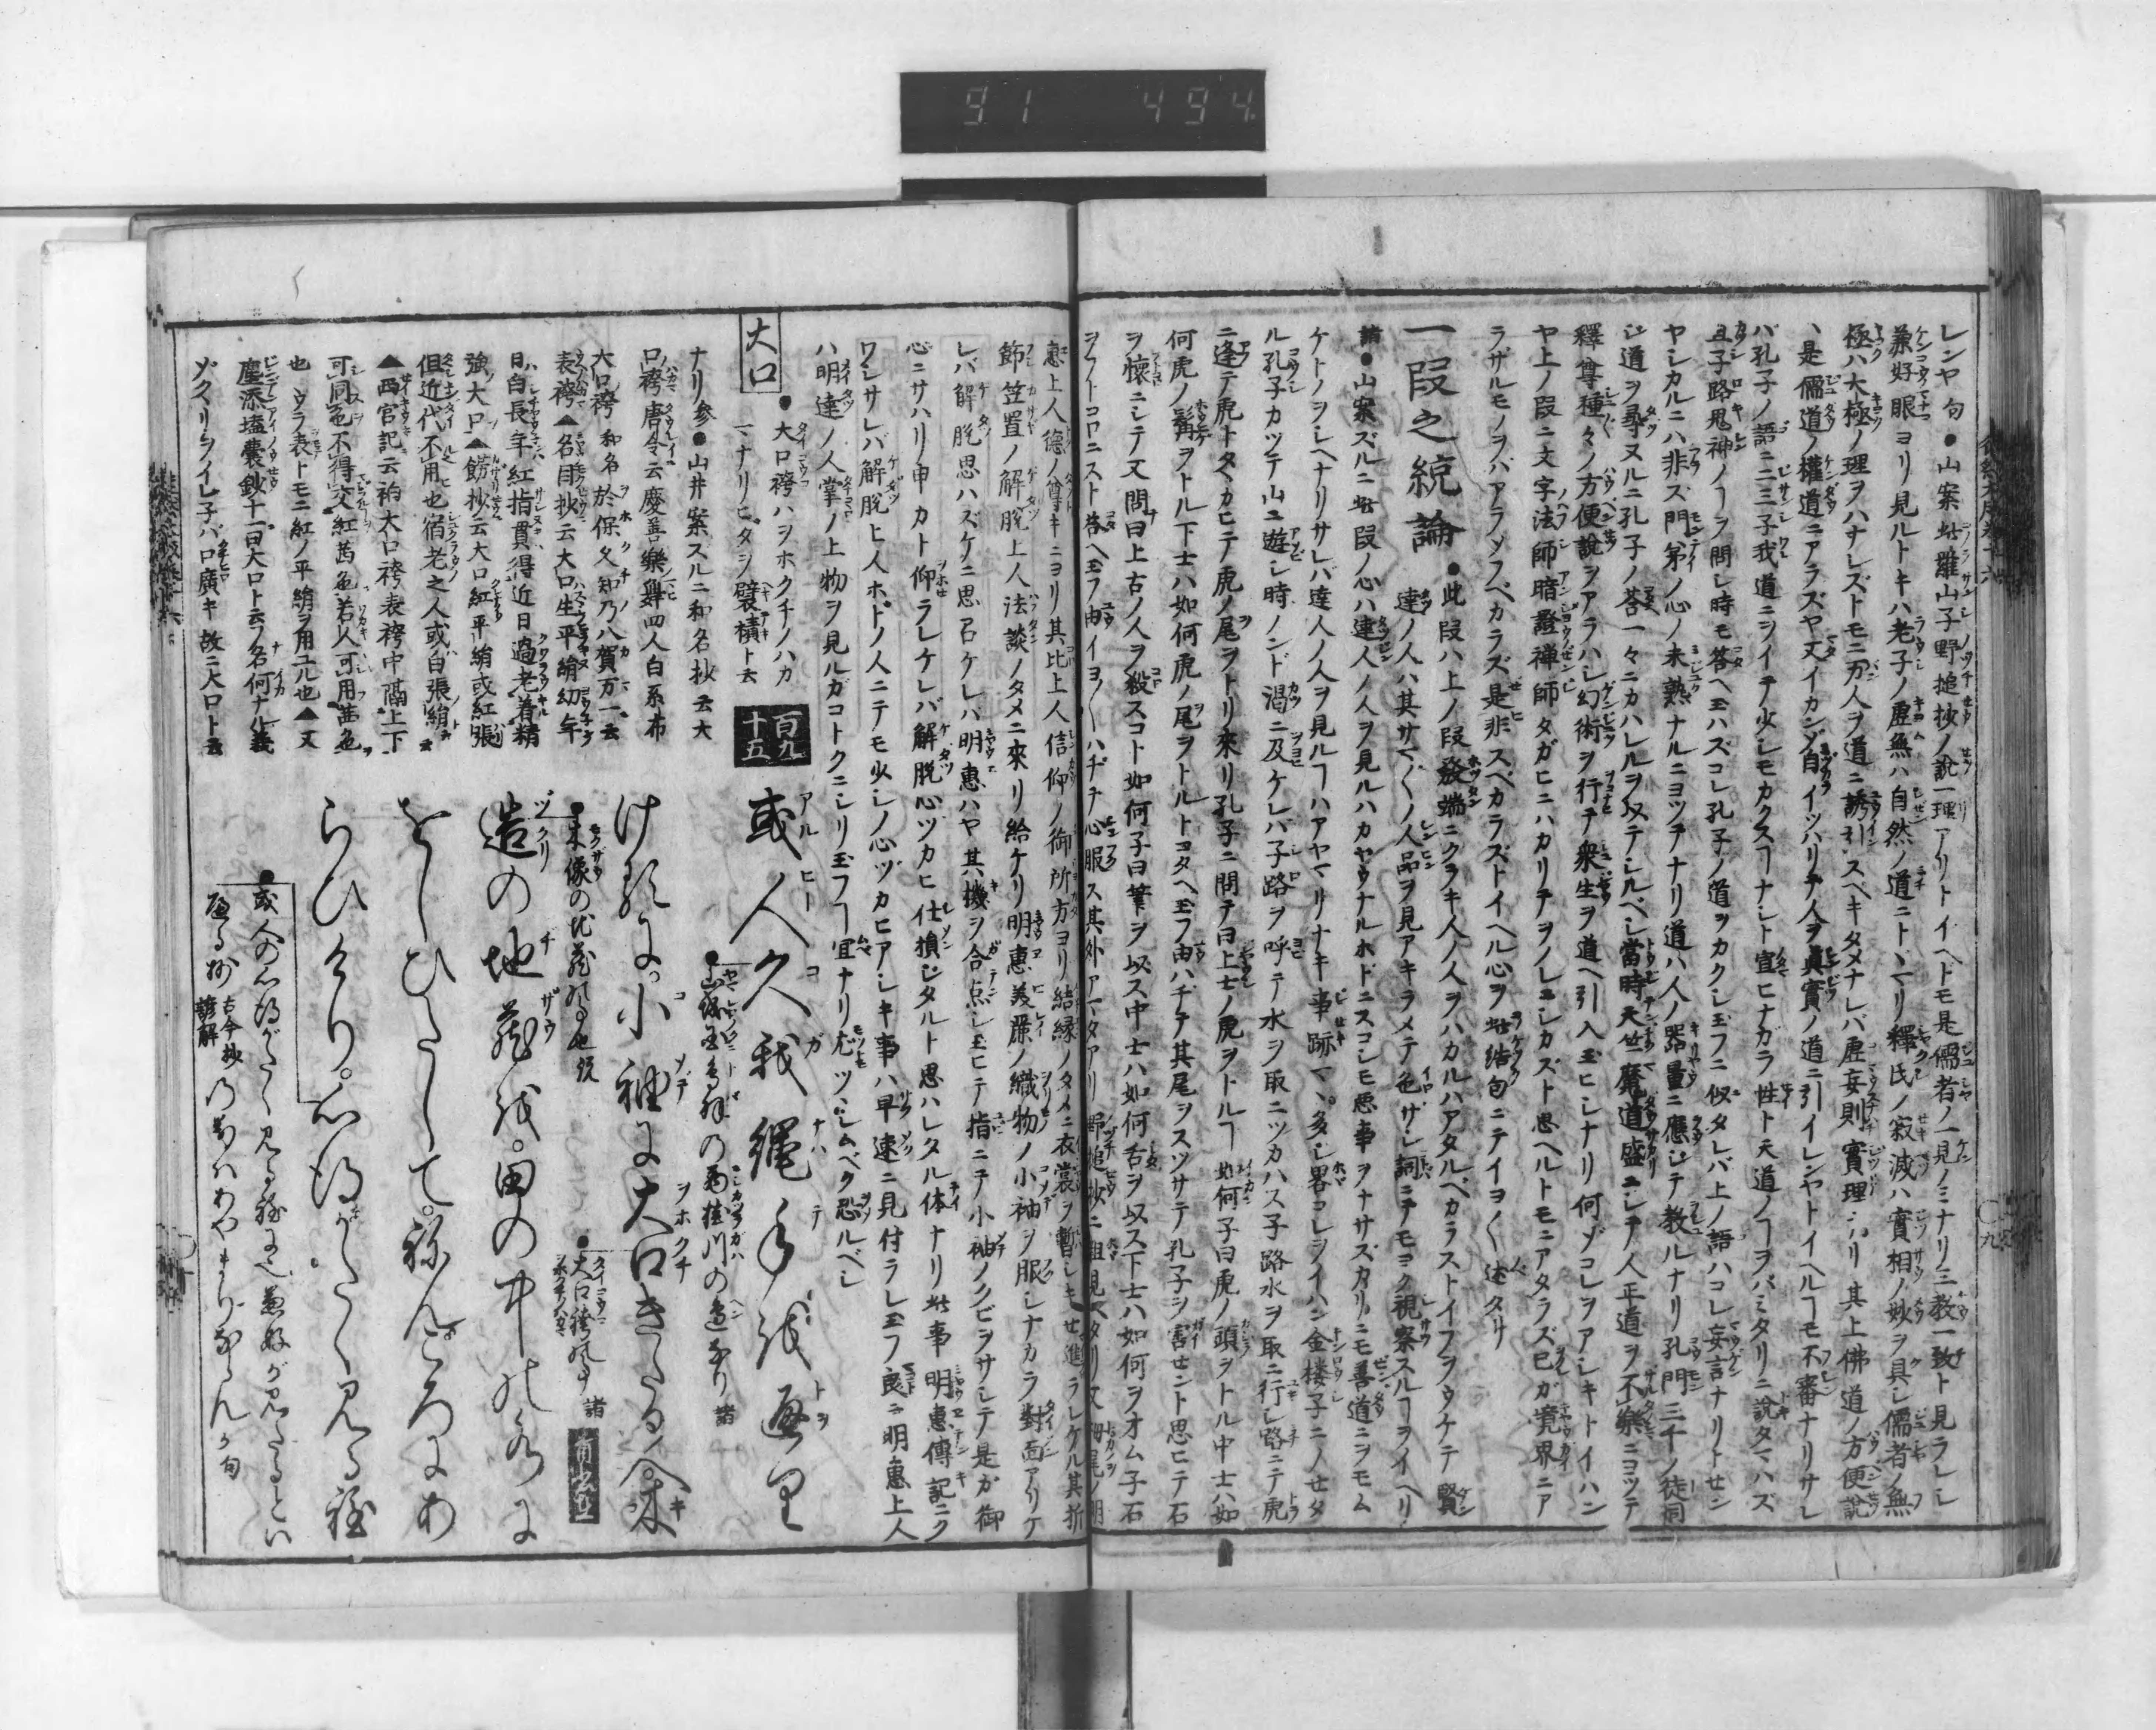 91 494
レンヤ句●山案此羅山子野搥抄ノ説一理アリトイヘドモ是儒者ノ一見ノミナリ三教一致ト見ラレシ
兼好眼ヨリ見ルトキハ老子ノ虚無ハ自然ノ道ニトヾマリ釋氏ノ寂滅ハ實相ノ妙ヲ具シ儒者ノ無
極ハ大極ノ理ヲハナレズトモニ万人ヲ道ニ誘引スベキタメナレバ虚妄則實理ニリ其上佛道ノ方便説
ハ是儒道ノ權道ニアラズヤ又イカンゾ自イツハリテ人ヲ真實ノ道ニ引イレンヤトイヘルヿモ不審ナリサレ
バ孔子ノ語ニ二三子我道ニヲイテ少シモカクスヿナシト宣ヒナガラ性ト天道ノヿヲバミタリニ説タマハズ
且子路鬼神ノヿヲ問シ時モ答ヘ玉ハズコレ孔子ノ道ヲカクシ玉フニ似タレバ上ノ語ハコレ妄言ナリトセン
ヤシカルニハ非ス門弟ノ心ノ未熟ナルニヨツテナリ道ハ人ノ器量ニ應ジテ教ルナリ孔門三千ノ徒同
シ道ヲ尋ヌルニ孔子ノ答一々ニカハレルヲ以テシルベシ當時天竺魔道盛ニシテ人正道ヲ不樂ニヨツテ
釋尊種々ノ方便説ヲアラハシ幻術ヲ行テ衆生ヲ道ヘ引入玉ヒシナリ何ゾコレヲアシキトイハン
ヤ上ノ段ニ文字法師暗證禅師タガヒニハカリテヲノレニシカズト思ヘルトモニアタラズ己ガ境界ニア
ラザルモノヲバアラソフベカラズ是非スベカラズトイヘル心ヲ此結句ニテイヨ〱述タリ
一段之統論●此段ハ上ノ段發端ニクラキ人ノ人ヲハカルハアタルベカラストイフヲウケテ賢
達ノ人ハ其サマ〱ノ人品ヲ見アキラメテ色サシ詞ニテモヨク視察スルヿヲイヘリ
諸●山案ズルニ此段ノ心ハ達人ノ人ヲ見ルハカヤウナルホドニスコシモ悪事ヲナサズカリニモ善道ニヲモム
ケトノヲシヘナリサレバ達人ノ人ヲ見ルヿハアヤマリナキ事跡マヽ多シ畧コレヲイハン金楼子ニノせタ
ル孔子カツテ山ニ遊シ時ノンド渇ニ及ケレバ子路ヲ呼テ水ヲ取ニツカハス子路水ヲ取ニ行シ路ニテ虎
ニ逢テ虎トタヽカヒテ虎ノ尾ヲトリ來リ孔子ニ問テ曰上士ノ虎ヲトルヿ如何子曰虎ノ頭ヲトル中士ハ如
何虎ノ髯ヲトル下士ハ如何虎ノ尾ヲトルトコタヘ玉フ由ハヂテ其尾ヲスツサテ孔子ヲ害せント思ヒテ石
ヲ懐ニシテ又問曰上古ノ人ヲ殺スコト如何子曰筆ヲ以ス中士ハ如何舌ヲ以ス下士ハ如何ヲオム子石
ヲフトコロニスト答ヘ玉フ由イヨ〱ハヂテ心服ス其外アマタアリ野搥抄ニ粗見ヘタリ又栂尾ノ明
惠上人德ノ尊キニヨリ其比上人信仰ノ御所方ヨリ結縁ノタメニ衣裳ヲ暫シキせ進ラレケル其折
節笠置ノ解脱上人法談ノタメニ來リ給ケリ明惠美麗ノ織物ノ小袖ヲ服シナカラ對面アリケ
レバ解脱思ハズケニ思召ケレバ明惠ハヤ其機ヲ合点シ玉ヒテ指ニテ小袖ノクビヲサシテ是ガ御
心ニサハリ申カト仰ラレケレバ解脱心ヅカヒ仕損ジタルト思ハレタル体ナリ此事明惠傳記ニク
ワシサレバ解脱上人ホドノ人ニテモ少シノ心ヅカヒアシキ事ハ早速ニ見付ラレ玉フ良ニ明惠上人
ハ明達ノ人掌ノ上物ヲ見ルガコトクニシリ玉フヿ宜ナリ尤ツヽシムベク恐ルベシ
大口
●大口袴ハヲホクチノハカ
マナリヒタヲ襞積ト云
百九十五
或人久我縄手を通り
●山城國鳥羽の西桂川の邊なり諸
ナリ参●山井案スルニ和名抄云大
口袴唐令云慶善樂舞四人白糸布
大口袴和名於保久知乃八賀万一云
表袴▲名目抄云大口生平絹幼年
日白長年紅指貫得近日過老着精
強大口▲餝抄云大口紅平絹或紅張
但近代不用也宿老之人或白張絹云
▲西宮記云袙大口袴表袴中隔上下
可同色不得交紅茜色若人可用茜色
也ウラ表トモニ紅ノ平絹ヲ用ユル也▲又
塵添壒嚢鈔十一曰大口ト云フ名何ナル義
ゾクリヲイレ子バ口廣キ故ニ大口ト云
けるに。小袖に大口きたる人。木
●木像の地蔵の事也説
●大口袴の事諸
造の地蔵を。田の中の水に
をしひたして。ねんごろにあ
らひけり。心得がたく見る程
●或人の心得がたく見る程に也兼好が見たるとい
へる抄古今抄諺解の事はあやまりならんか句